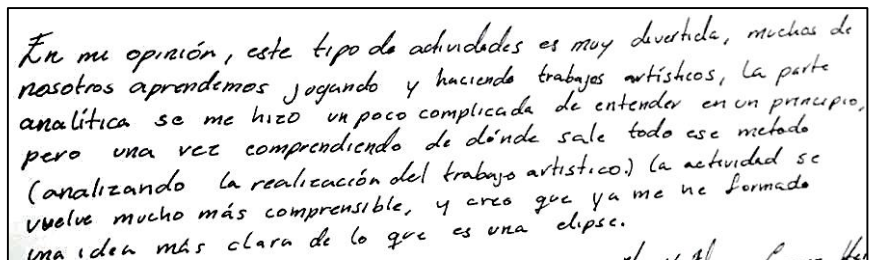 En mi opinión, este tipo de actividades es muy divertida, muchos de
nosotros aprendemos jugando y haciendo trabajos artísticos, la parte
analítica se me hizo un poco complicada de entender en un principio,
pero una vez comprendiendo de dónde sale todo ese metodo
(analizando la realización del trabajo artistico.) la actividad se
vuelve mucho más comprensible, y creo que ya me he formado
una idea más clara de lo que es una elipse.